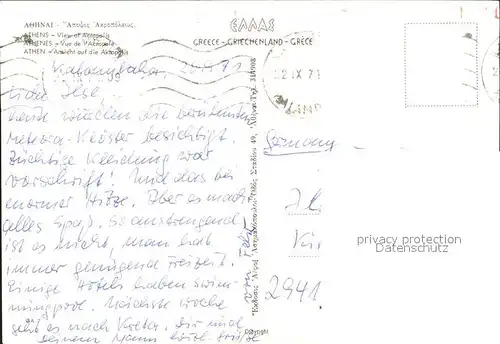 ΑΘΗΝΑΙ - Ἄποψις Ἀκροπόλεως.
ATHENS - View of Akropolis
ATHENES - Vue de l'Akropole
ATHEN - Ansicht auf die Akropolis
ΕΛΛΑΣ
GREECE - GRIECHENLAND - GRECE
Kalambaka,
Liebe Ilse,
heute wurden die berühmten
Meteora-Klöster besichtigt.
Züchtige Kleidung war
Vorschrift! Und das bei
enormer Hitze. Aber es macht
alles Spaß. So anstrengend
ist es nicht, man hat
immer genügend Freizeit.
Einige Hotels haben Swim-
mingpool. Nächste Woche
geht es nach Kreta. Dir und
Deinem Mann Grüße
IX 71
Germany
2941
Copyright
privacy protection
Datenschutz